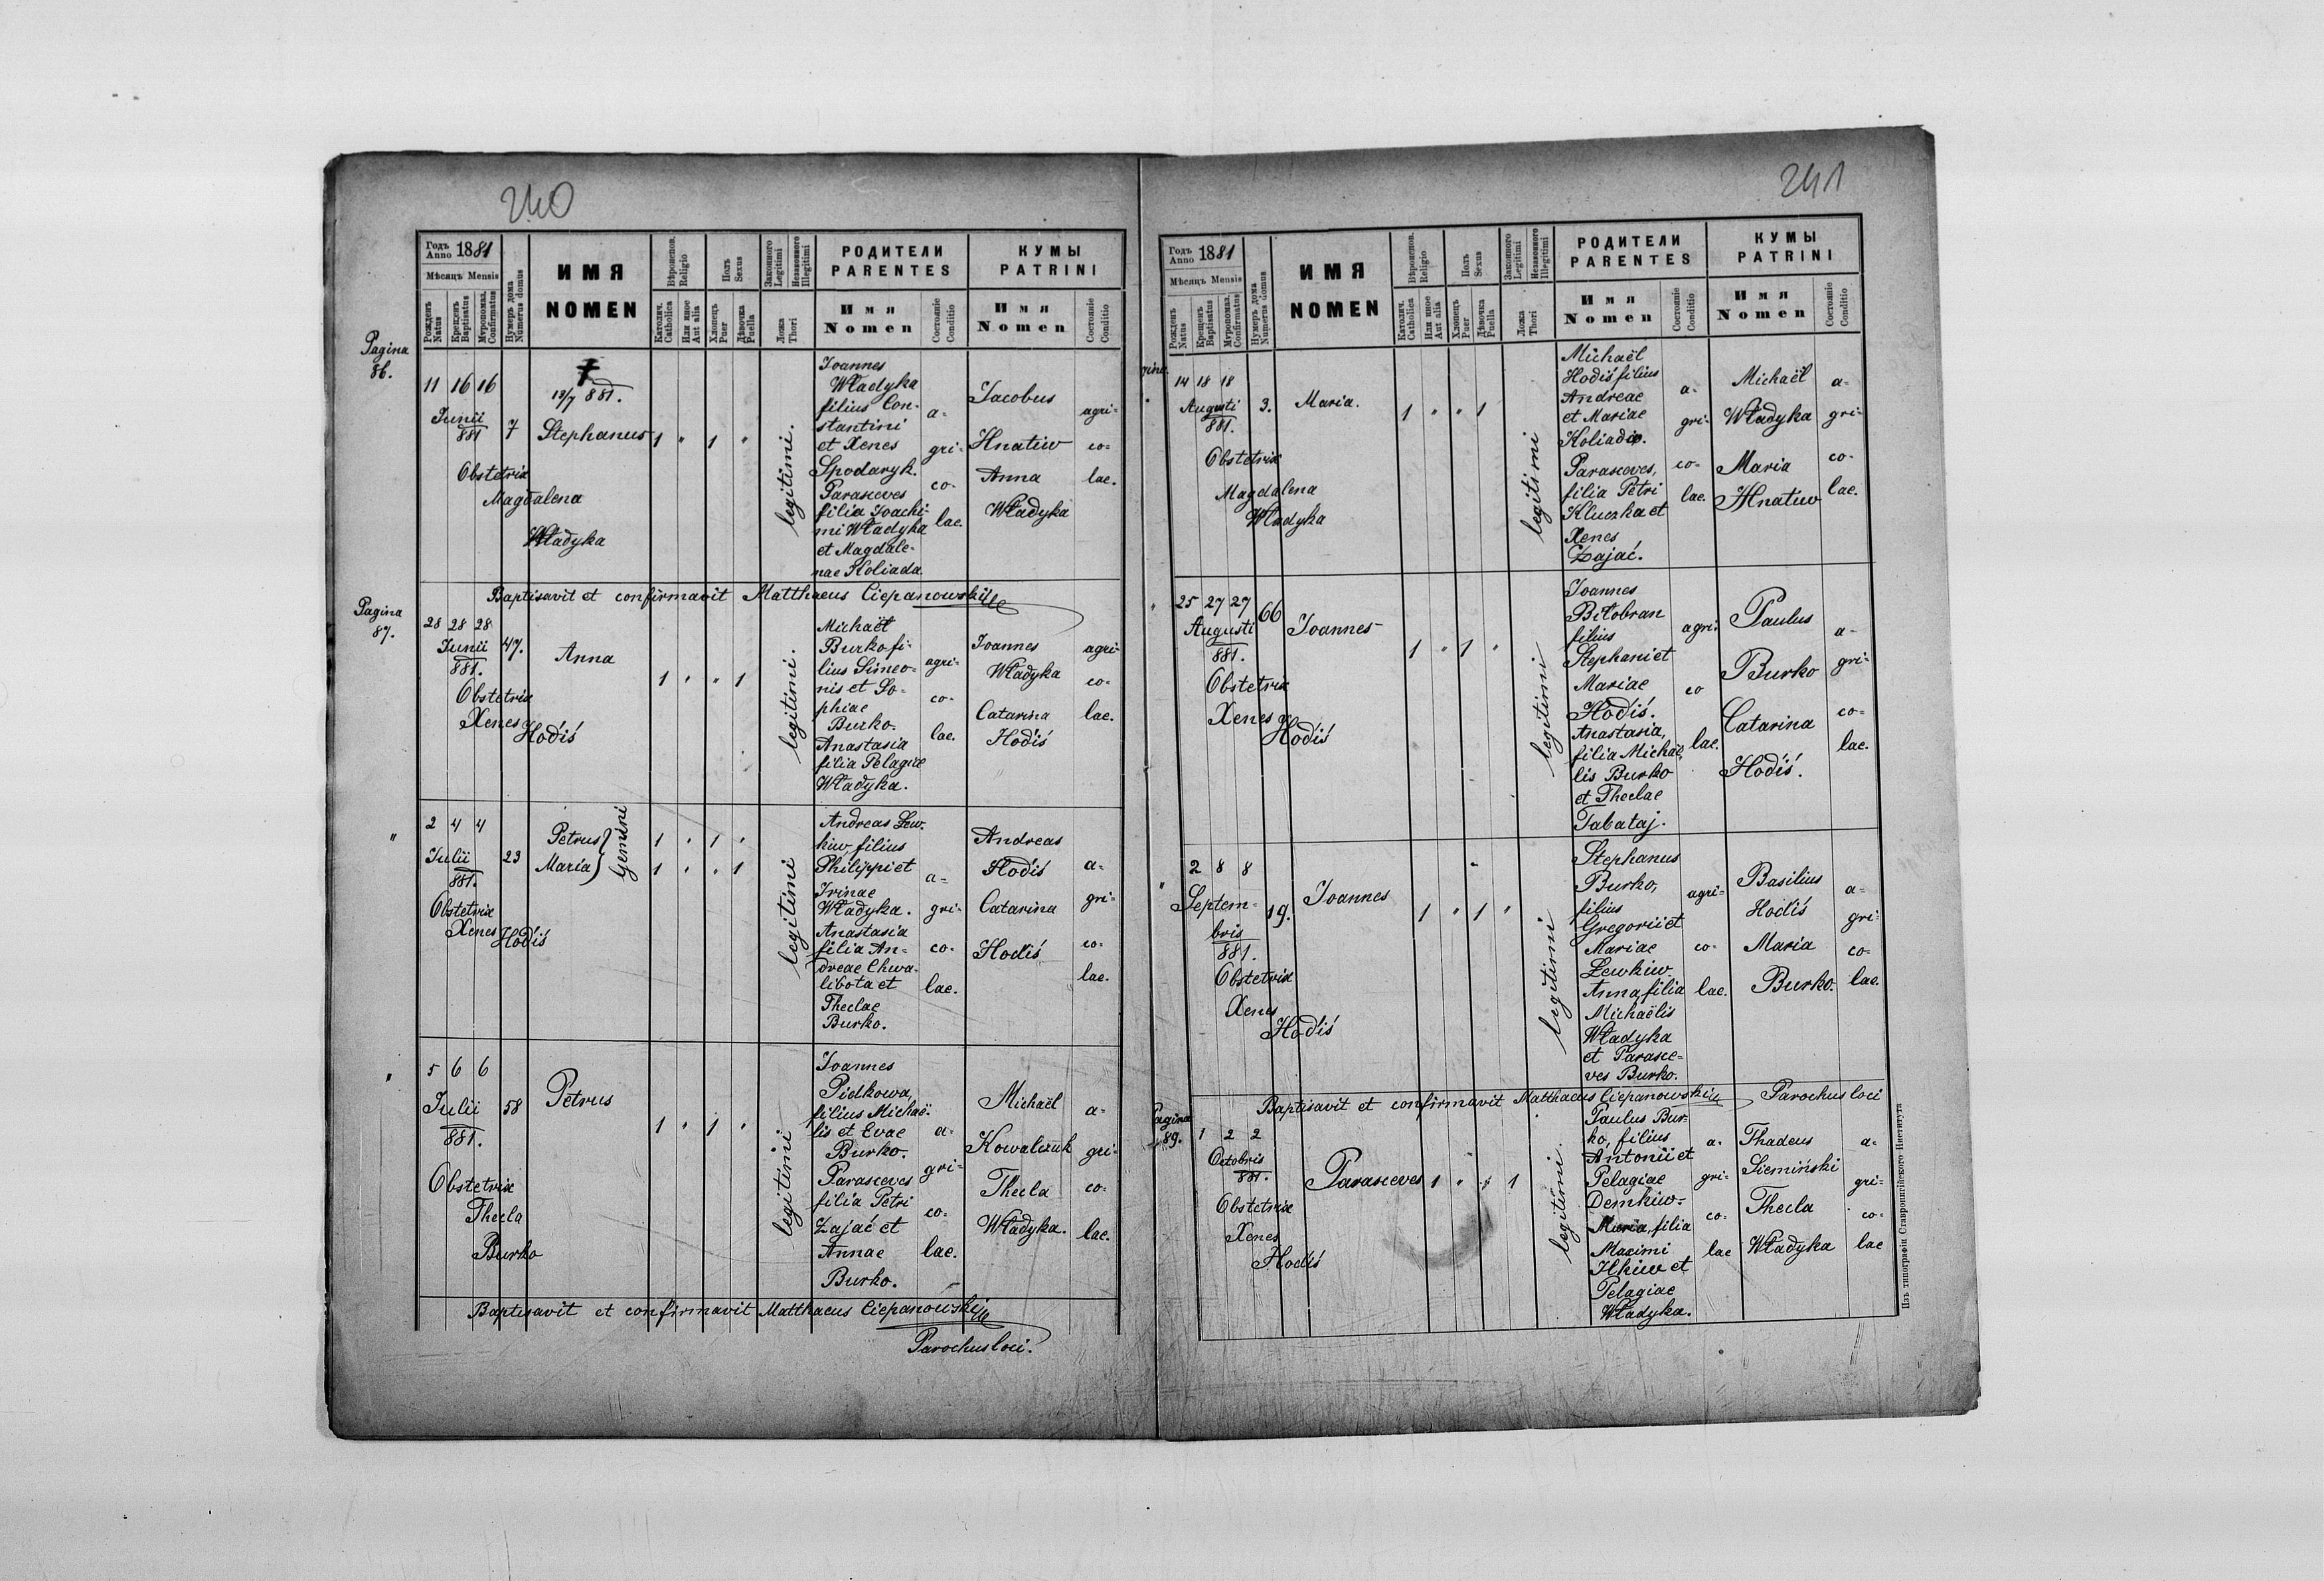 240
Годъ
Anno 1881
Мѣсяцъ Mensis
Рожденъ
Natus
Крещенъ
Baptisatus
Мѵропомаз.
Confirmatus
Нумеръ дома
Numerus domus
ИМЯ
NOMEN
Вѣроиспов.
Religio
Католич.
Catholica
Или иное
Aut alia
Полъ
Sexus
Хлопецъ
Puer
Дѣвочка
Puella
Законного
Legitimi
Незаконного
Illegitimi
Ложа
Thori
РОДИТЕЛИ
PARENTES
Имя
Nomen
Состояніе
Conditio
КУМЫ
PATRINI
Имя
Nomen
Состояніе
Conditio
Pagina
86.
11 16 16
Junii
881
7
12/7 881.
Stephanus
1 " 1 "
legitimi.
Joannes
Władyka
filius Con-
stantini
et Xenes
Spodaryk.
Parasceves
filia Joachi-
mi Władyka
et Magdale-
nae Koliada.
a-
gri-
co-
lae.
Jacobus
Hnatiw
Anna
Władyka
agri-
co-
lae.
Obstetrix
Magdalena
Władyka
Baptisavit et confirmavit Matthaeus Ciepanowskij
Pagina
87.
28 28 28
Junii
881.
47.
Anna
1 " " 1
legitimi.
Michaël
Burko fi-
lius Simeo-
nis et So-
phiae
Burko.
Anastasia
filia Pelagiae
Władyka.
agri-
co-
lae.
Joannes
Władyka
Catarina
Hodiś
agri-
co-
lae.
Obstetrix
Xenes
Hodiś
"
2 4 4
Julii
881.
23
Petrus
Maria
Gemini
1 " 1 "
1 " " 1
legitimi
Andreas Lew-
kiw, filius
Philippi et
Irinae
Władyka.
Anastasia
filia An-
dreae Chwa-
libota et
Theclae
Burko.
a-
gri-
co-
lae.
Andreas
Hodiś
Catarina
Hodiś
a-
gri-
co-
lae.
Obstetrix
Xenes
Hodiś
"
5 6 6
Julii
881.
58
Petrus
1 " 1 "
legitimi
Joannes
Pidkowa,
filius Michaë-
lis et Evae
Burko.
Parasceves
filia Petri
Zajać et
Annae
Burko.
a-
gri-
co-
lae.
Michaël
Kowalczuk
Thecla
Władyka.
a-
gri-
co-
lae.
Obstetrix
Thecla
Burko
Baptisavit et confirmavit Matthaeus Ciepanowskij
Parochus loci.
241
Годъ
Anno 1881
Мѣсяцъ Mensis
Рожденъ
Natus
Крещенъ
Baptisatus
Мѵропомаз.
Confirmatus
Нумеръ дома
Numerus domus
ИМЯ
NOMEN
Вѣроиспов.
Religio
Католич.
Catholica
Или иное
Aut alia
Полъ
Sexus
Хлопецъ
Puer
Дѣвочка
Puella
Законного
Legitimi
Незаконного
Illegitimi
Ложа
Thori
РОДИТЕЛИ
PARENTES
Имя
Nomen
Состояніе
Conditio
КУМЫ
PATRINI
Имя
Nomen
Состояніе
Conditio
14 18 18
Augusti
881.
3.
Maria.
1 " " 1
legitimi
Michaël
Hodiś filius
Andreae
et Mariae
Koliada.
Parasceves,
filia Petri
Kluczka et
Xenes
Zajać.
a-
gri-
co-
lae.
Michaël
Władyka
Maria
Hnatiw
a-
gri-
co-
lae.
Obstetrix
Magdalena
Władyka
"
25 27 27
Augusti
881.
66
Joannes
1 " 1 "
legitimi
Joannes
Biłobran
filius
Stephani et
Mariae
Hodiś.
Anastasia,
filia Michaë-
lis Burko
et Theclae
Tabataj.
agri-
co
lae.
Paulus
Burko
Catarina
Hodiś.
a-
gri-
co-
lae.
Obstetrix
Xenes
Hodiś
"
2 8 8
Septem-
bris
881.
19.
Joannes
1 " 1 "
legitimi
Stephanus
Burko,
filius
Gregorii et
Mariae
Lewkiw.
Anna filia
Michaëlis
Władyka
et Parasce-
ves Burko.
agri-
co-
lae.
Basilius
Hodiś
Maria
Burko.
a-
gri-
co-
lae.
Obstetrix
Xenes
Hodiś
Baptisavit et confirmavit Matthaeus Ciepanowskij Parochus loci
Pagina
89.
1 2 2
Octobris
881.
Parasceves
1 " " 1
legitimi.
Paulus Bur-
ko, filius
Antonii et
Pelagiae
Demkiw.
Maria, filia
Maximi
Ilkiw et
Pelagiae
Władyka.
a-
gri-
co-
lae
Thadeus
Siemiński
Thecla
Władyka
a-
gri-
co-
lae
Obstetrix
Xenes
Hodiś
Изъ типографіи Ставропигійского Института